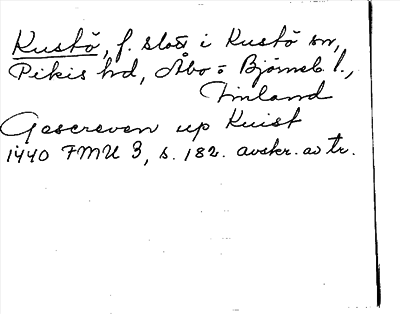 Kustö, f. slott i Kustö sn,
Pikis hd, Åbo = Björneb. l.,
Finland
Gescreven up Kuist
1440 FMU 3, s. 182. avskr. av tr.